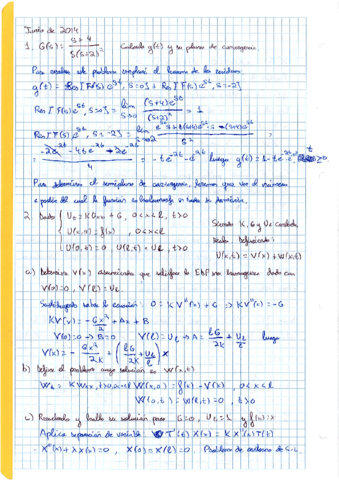 Junio de 2014
1. G(s) = (s+4)/(s(s+2)²) Calcula g(t) y su plano de convergencia.
Para resolver este problema emplearé el teorema de los residuos.
g(t) = Res[F(s)e^{st}, s=0] + Res[F(s)e^{st}, s=-2]
Res[F(s)e^{st}, s=0] = lim_{s→0} (s+4)e^{st}/(s+2)² = 1
Res[F(s)e^{st}, s=-2] = lim_{s→-2}
= (-2e^{-2t} - 4te^{-2t} + 2te^{-2t})/4 = -te^{-2t} - e^{-2t} luego g(t) = 1 - te^{-2t} - e^{-2t}, t≥0
Para determinar el semiplano de convergencia, tenemos que ver el número
a partir del cual la función es holomorfa en todo su dominio.
2. Dado { U_t = KU_xx + G, 0<x<l, t>0
U(x,0) = f(x), 0<x<l
U(0,t) = 0, U(l,t) = U_l, t>0
Siendo K, G y U_l constantes,
U(x,t) = V(x) + W(x,t)
a) Determina V(x) que satisface la EDP dada con
V(0)=0, V(l)=U_l.
Sustituyendo sobre la ecuación: 0 = KV''(x) + G ⇒ KV''(x) = -G
KV(x) = -Gx²/2 + Ax + B
V(0)=0 → B=0 V(l)=U_l → A = lG/2K + U_l/l luego
V(x) = -Gx²/2K + (lG/2K + U_l/l)x
b) Define el problema cuya solución es W(x,t)
W_t = KW_xx, t>0, 0<x<l W(x,0) = f(x) - V(x), 0<x<l
W(0,t) = W(l,t) = 0, t>0
c) Resuélvelo y halla su solución para G=0, U_l=1 y f(x)=x
Aplica separación de variable T'(t)X(x) = KX''(x)T(t)
X''(x) + λX(x) = 0, X(0)=X(l)=0. Problema de contorno de S-L